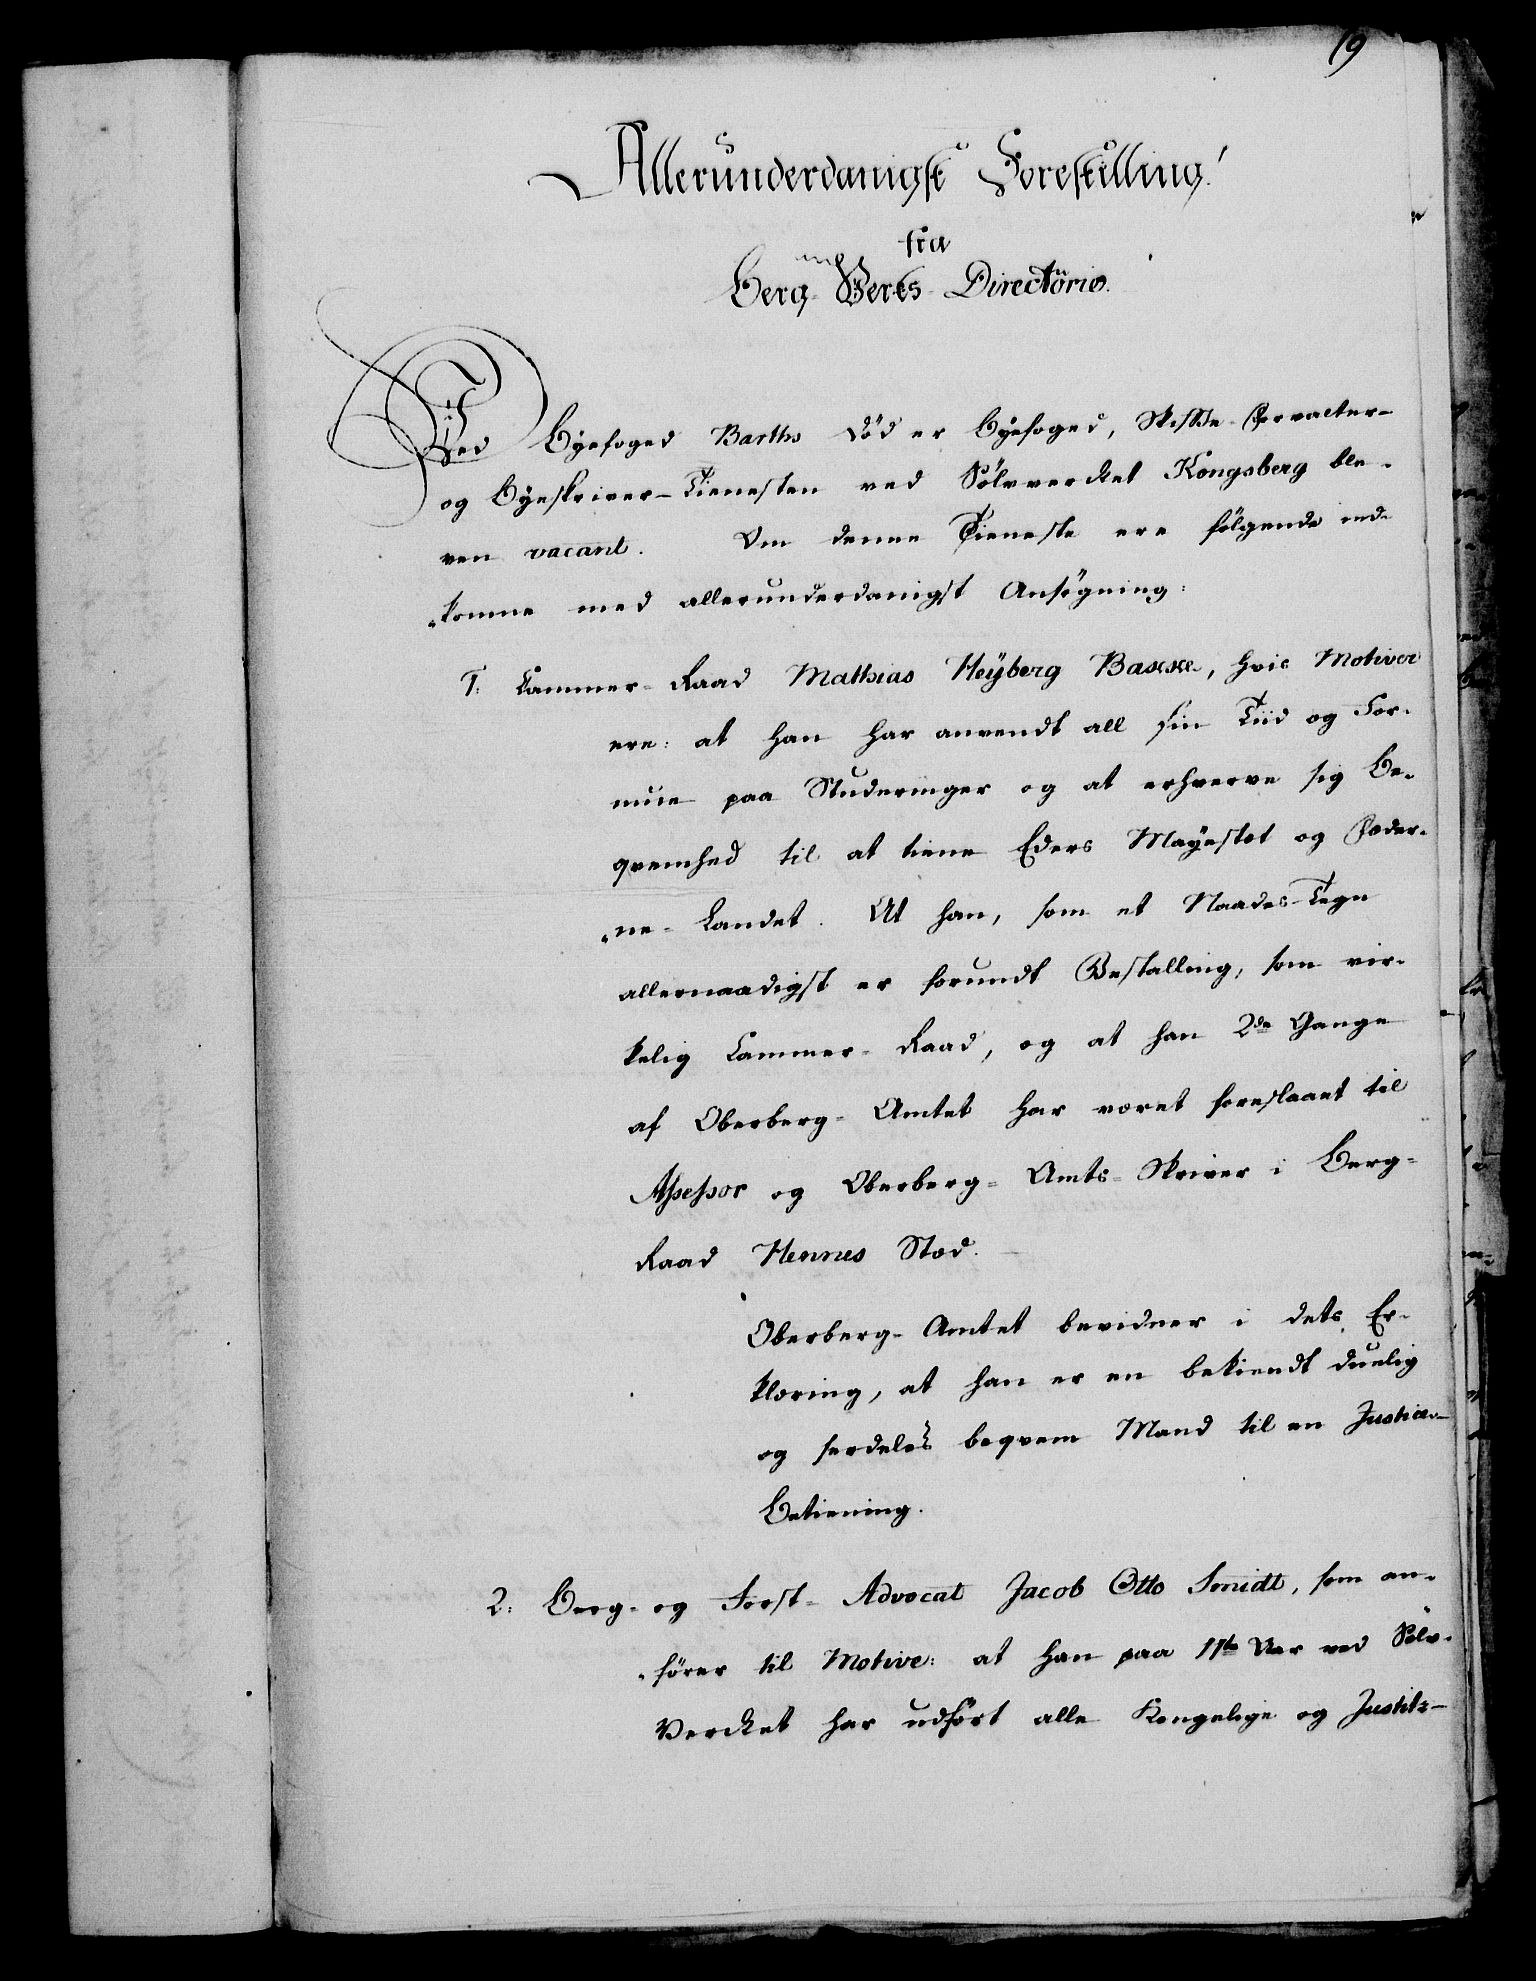 19
Allerunderdanigst Forestilling!
fra
Berg-Verks-Directorio.
Ved Byefoged Barths Död er Byefoged, Skifte-Forvalter-
og Byeskriver-Tienesten ved Sölvverket Kongsberg ble-
ven vacant. Om denne Tieneste ere fölgende ind-
komne med allerunderdanigst Ansögning:
1: Cammer-Raad Mathias Heÿberg Baxxe, hvis Motiver
ere: at han har anvendt all sin Tiid og For-
mue paa Studeringer og at erhverve sig Be-
qvemhed til at tiene Eders Mayestet og Fæder-
ne-Landet. At han, som et Naades-Tegn
allernaadigst er forundt Bestalling, som vir-
kelig Cammer-Raad, og at han 2de Gange
af Oberberg-Amtet har været foreslaaet til
Assessor og Oberberg-Amts-Skriver i Berg-
Raad Hennes Stæd.
Oberberg-Amtet bevidner i dets Er-
klæring, at han er en bekiendt duelig
og serdeles beqvem Mand til en Justice-
Betiening.
2: Berg- og Forst-Advocat Jacob Otto Smidt, som an-
förer til Motive: at han paa 11te Aar ved Sölv-
Verket har udfört alle Kongelige og Justitz-